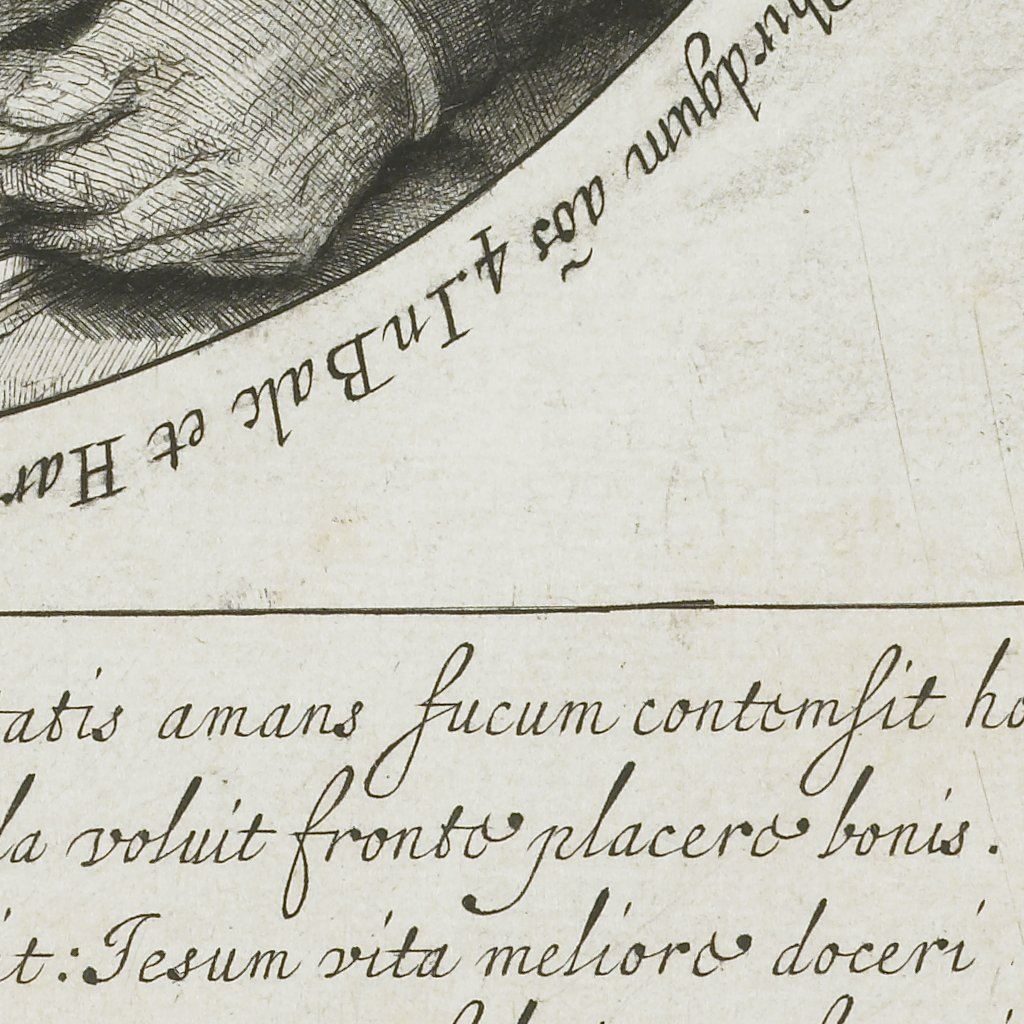 hurdgum aõs 4. In Balc et Har
tatis amans fucum contemſit ho
la voluit fronte placere bonis.
it: Jesum vita meliore doceri